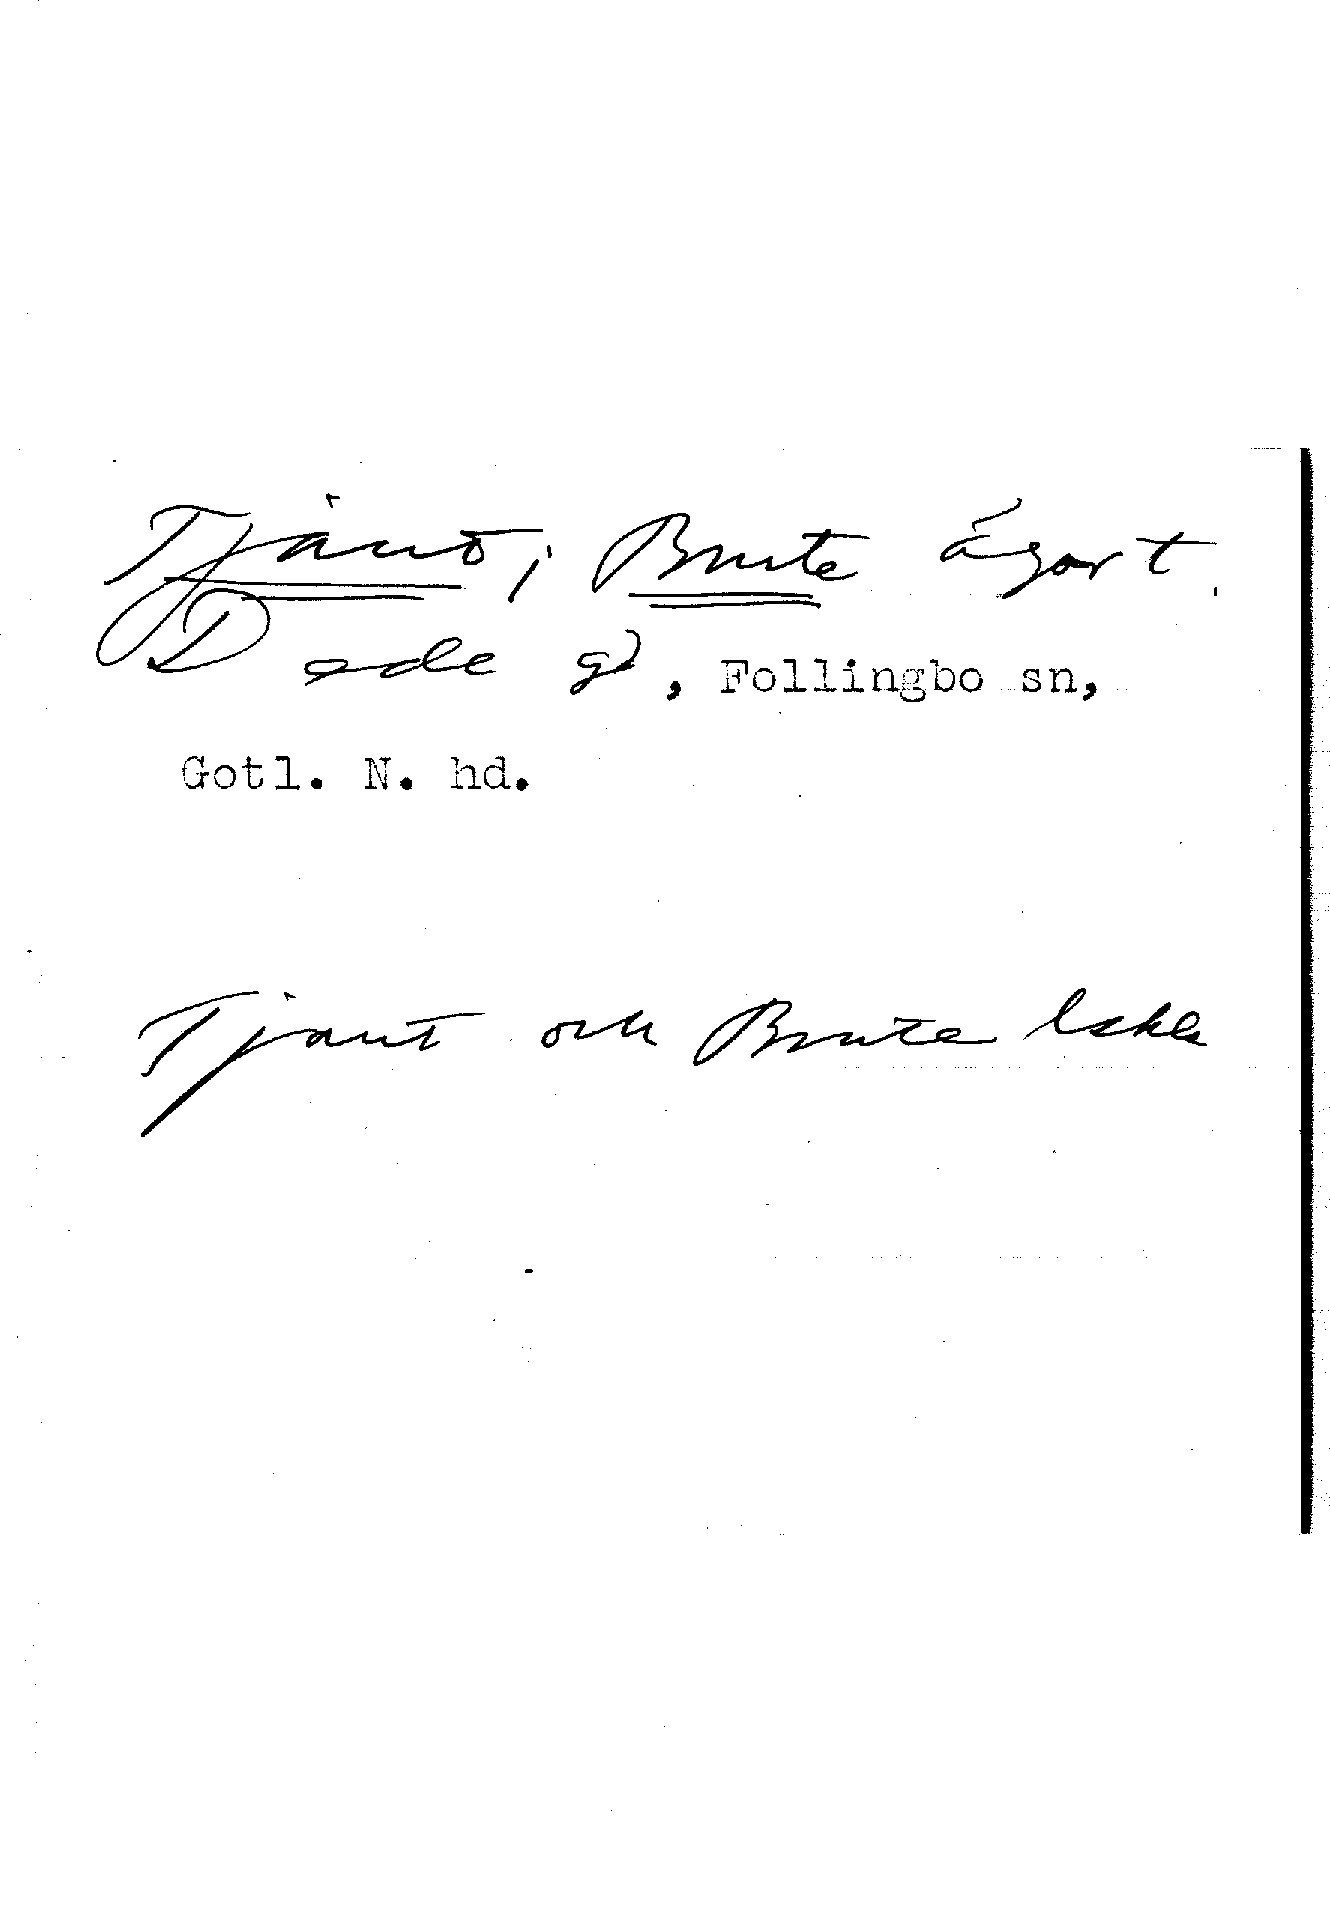 Tjaut, Brute ägort
Dede gd, Follingbo sn,
Gotl. N. hd.
Tjaut och Brute